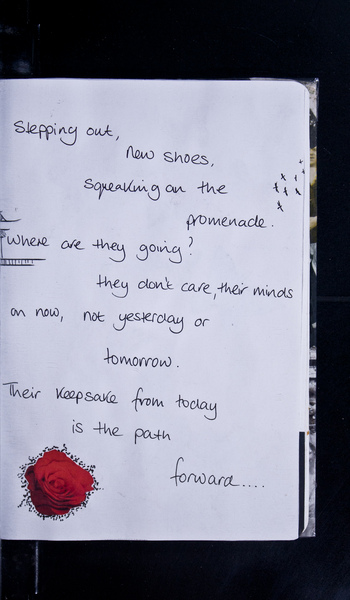 Stepping out,
new shoes,
squeaking on the
promenade.
Where are they going?
they don't care, their minds
on now, not yesterday or
tomorrow.
Their keepsake from today
is the path
forward....